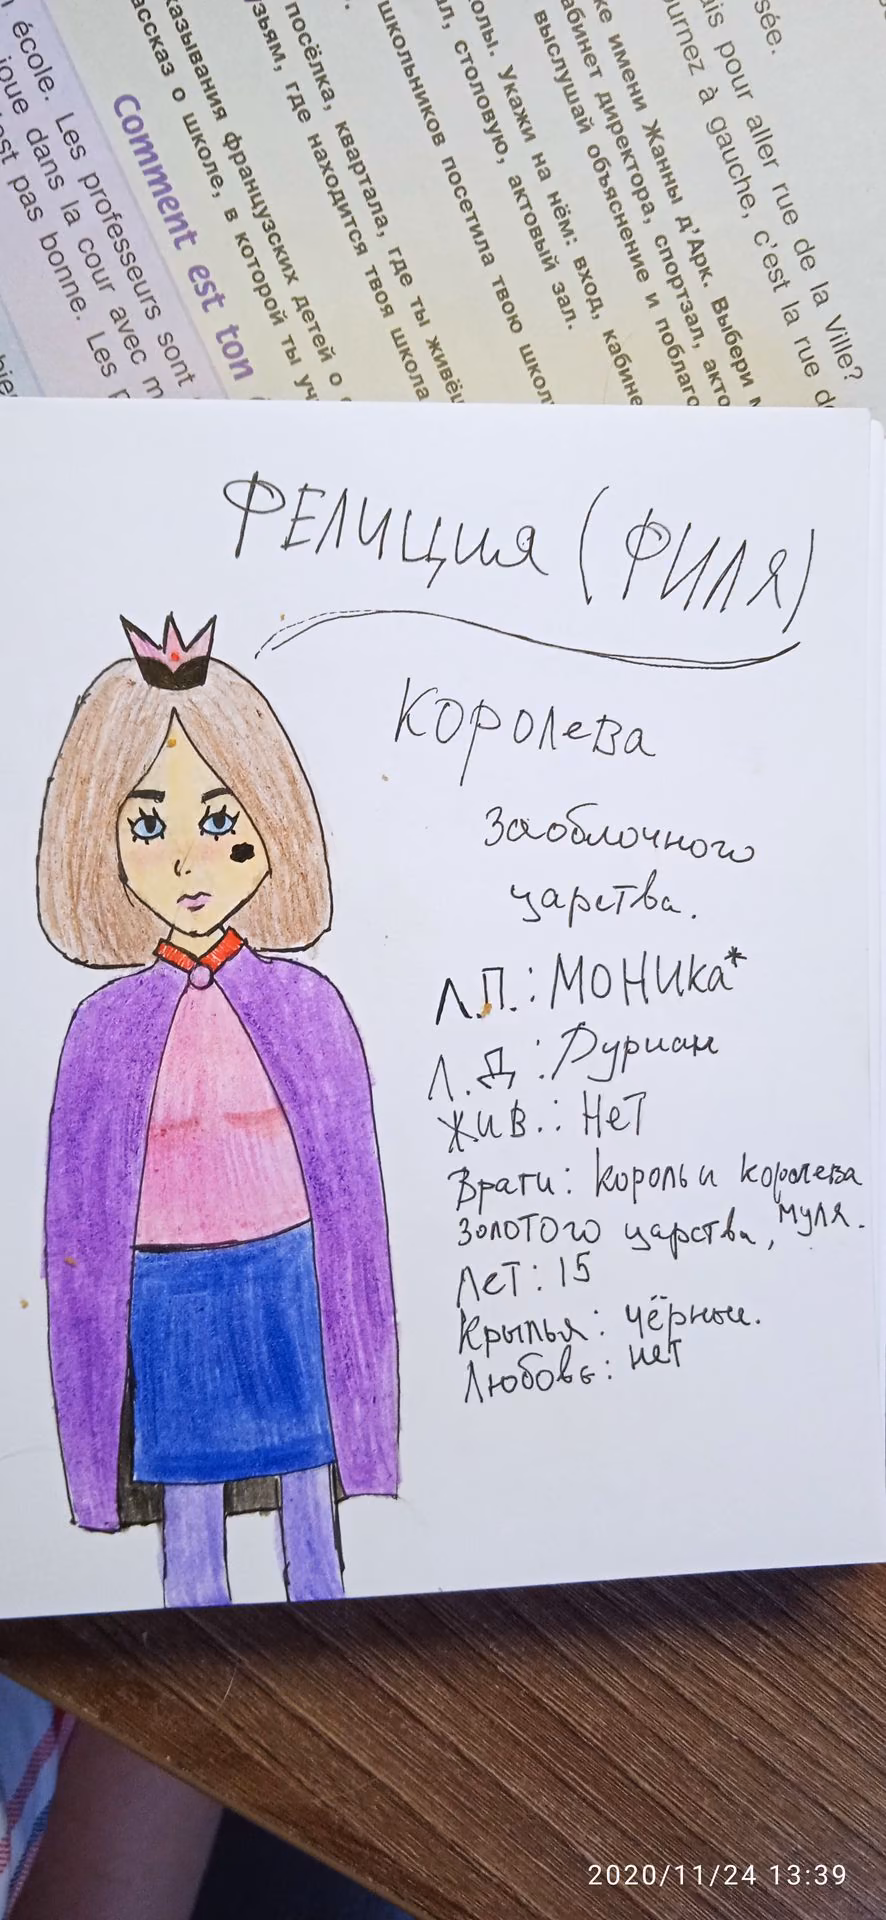 école. Les professeurs sont
joue dans la cour avec m
est pas bonne. Les p
Comment est ton
казывания французских детей о
ассказ о школе, в которой ты уч
посёлка, квартала, где ты живёш
узьям, где находится твоя школа
школьников посетила твою школ
олы. Укажи на нём: вход, кабине
ал, столовую, актовый зал.
ке имени Жанны д'Арк. Выбери м
абинет директора, спортзал, акто
выслушай объяснение и поблаго
sée.
ais pour aller rue de la Ville?
ournez à gauche, c'est la rue d
ФЕЛИЦИЯ (ФИЛЯ)
Королева
Заоблочного
царства.
Л.П.: Моника*
Л.Д: Дуриан
Жив.: Нет
Враги: король и королева
золотого царства, муля.
Лет: 15
Крылья: чёрные.
Любовь: нет
2020/11/24 13:39